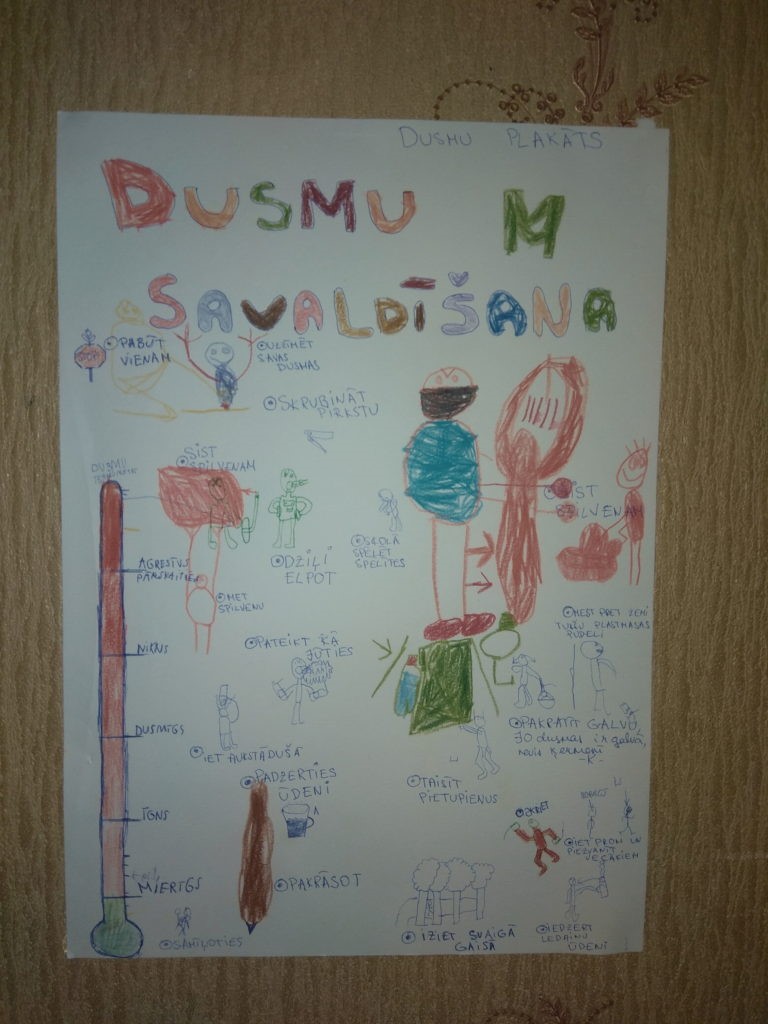 DUSMU PLAKĀTS
DUSMU M
SAVALDĪŠANA
STOP
PABŪT
VIENAM
UZZĪMĒT
SAVAS
DUSMAS
SKRUBINĀT
PIRKSTU
SIST
SPILVENAM
DUSMU
DZIĻI
ELPOT
SPĒLĒT
SPĒLĪTES
SIST
AGRESĪVS
MET
SPILVENU
MEST PRET ZEMI
TUKŠU PLASTMASAS
PUDELI
PATEIKT KĀ
JŪTIES
NIKNS
PAKRATĪT GALVU,
JO dusmas ir galvā,
nevis ķermenī
-K-
DUSMĪGS
IET AUKSTĀ DUŠĀ
PADZERTIES
ŪDENI
TAISĪT
PIETUPIENUS
ĪGNS
SKRIET
IET PROM UN
PIEZVANĪT
VECĀKIEM
MIERĪGS
PAKRĀSOT
SAMĪĻOTIES
IZIET SVAIGĀ
GAISĀ
IEDZERT
LEDAINU
ŪDENI